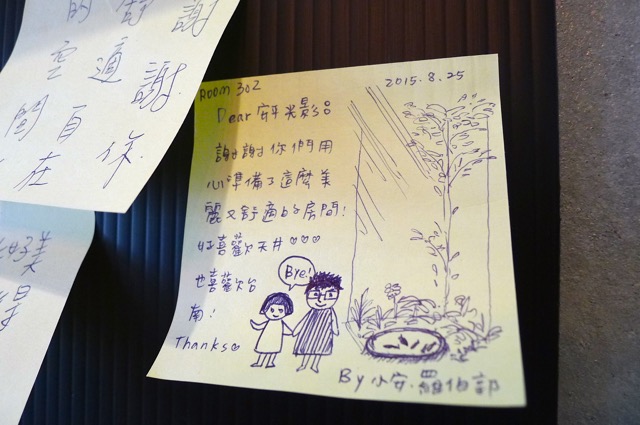 的 舒 謝
空 適 謝
間 自 你
在
好美
ROOM 302
2015.8.25
Dear 安平光影。
謝謝你們用
心準備了這麼美
麗又舒適的房間！
好喜歡天井♡♡♡
也喜歡台
南！
Thanks♡
Bye!
By 小安.羅伯部